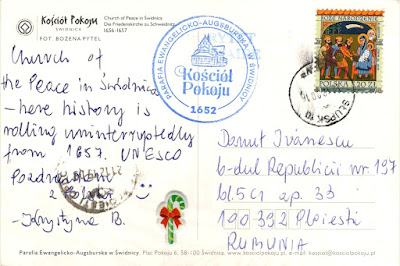 Kościół Pokoju
ŚWIDNICA
Church of Peace in Świdnica
Die Friedenskirche zu Schweidnitz
1656-1657
FOT. BOŻENA PYTEL
PARAFIA EWANGELICKO-AUGSBURSKA W ŚWIDNICY
Kościół
Pokoju
1652
BOŻE NARODZENIE
POLSKA
SŁUPSK
Church of
the Peace in Świdnica
- here history is
rolling uninterruptedly
from 1657. UNESCO
Pozdrawiam
z Polski
- Krystyna B.
Danut Ivănescu
b-dul Republicii nr. 197
bl. 5C1 ap. 33
100392 Ploiesti
RUMUNIA
Parafia Ewangelicko-Augsburska w Świdnicy, Plac Pokoju 6, 58-100 Świdnica, www.kosciolpokoju.pl, e-mail: kosciol@kosciolpokoju.pl